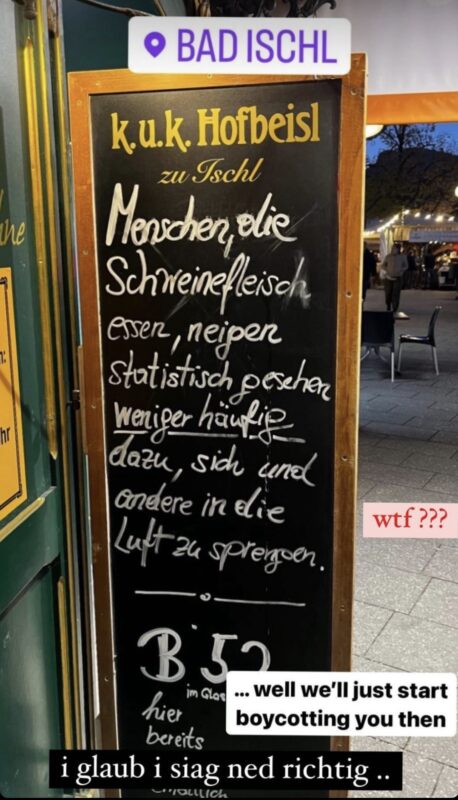 BAD ISCHL
k.u.k. Hofbeisl
zu Ischl
Menschen, die
Schweinefleisch
essen, neigen
statistisch gesehen
weniger häufig
dazu, sich und
andere in die
Luft zu sprengen.
wtf ???
B 52
im Glas
... well we'll just start
boycotting you then
hier
bereits
i glaub i siag ned richtig ..